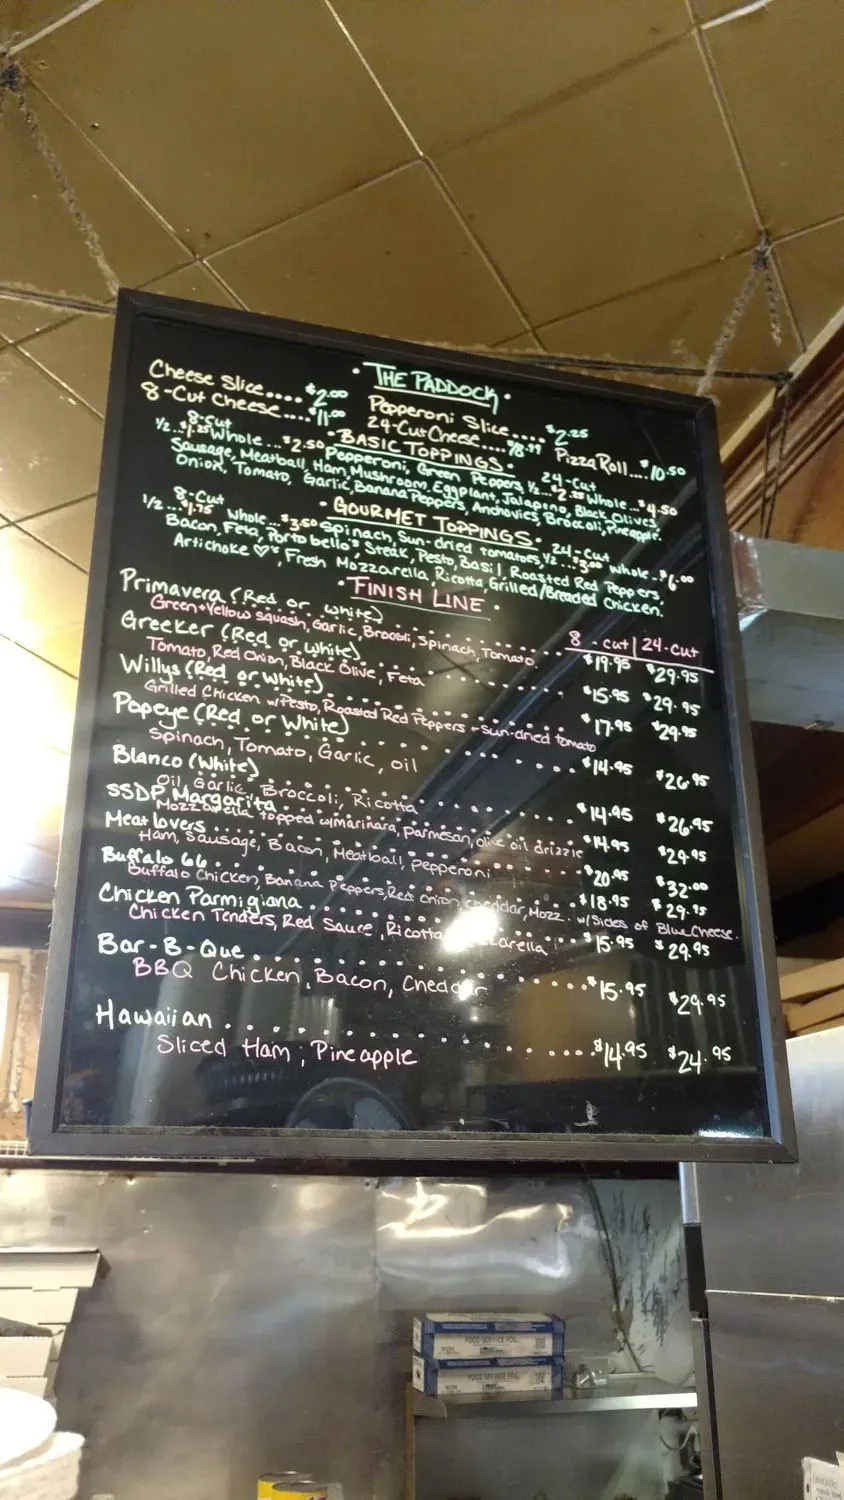 • THE PADDOCK •
Cheese Slice.... $2.00 Pepperoni Slice.... $2.25
8-Cut Cheese.... $11.00 24-Cut Cheese.... Pizza Roll.... $10.50
• BASIC TOPPINGS •
8-Cut 24-Cut
1/2... $1.25 Whole... $2.50 1/2... $2.25 Whole... $4.50
Pepperoni, Green Peppers,
Sausage, Meatball, Ham, Mushroom, Eggplant, Jalapeno, Black Olives,
Onion, Tomato, Garlic, Banana Peppers, Anchovies, Broccoli, Pineapple.
• GOURMET TOPPINGS •
8-Cut 24-Cut
1/2... $1.75 Whole... $3.50 Spinach, Sun-dried tomatoes, 1/2... $3.00 Whole... $6.00
Bacon, Feta, Portobello's, Steak, Pesto, Basil, Roasted Red Peppers,
Artichoke ♡'s, Fresh Mozzarella, Ricotta, Grilled/Breaded Chicken.
• FINISH LINE •
8-cut | 24-cut
Primavera (Red or white) $19.95 $29.95
Green+Yellow squash, Garlic, Broccoli, Spinach, Tomato.
Greeker (Red or White) $15.95 $29.95
Tomato, Red Onion, Black Olive, Feta
Willys (Red or White) $17.95 $29.95
Grilled Chicken w/Pesto, Roasted Red Peppers + Sun-dried tomato
Popeye (Red or White) $14.95 $26.95
Spinach, Tomato, Garlic, oil
Blanco (White) $14.95 $26.95
Oil, Garlic, Broccoli, Ricotta
SSDP Margarita $14.95 $29.95
Mozzarella topped w/marinara, parmesan, olive oil drizzle
Meatlovers $20.95 $32.00
Ham, Sausage, Bacon, Meatball, Pepperoni
Buffalo 66 $18.95 $29.95
Buffalo Chicken, Banana Peppers, Red onion, cheddar, Mozz. w/Sides of Blue Cheese.
Chicken Parmigiana $15.95 $29.95
Chicken Tenders, Red Sauce, Ricotta, Mozzarella
Bar-B-Que $15.95 $29.95
BBQ Chicken, Bacon, Cheddar
Hawaiian $14.95 $24.95
Sliced Ham, Pineapple
FOOD SERVICE FOIL
FOOD SERVICE FOIL